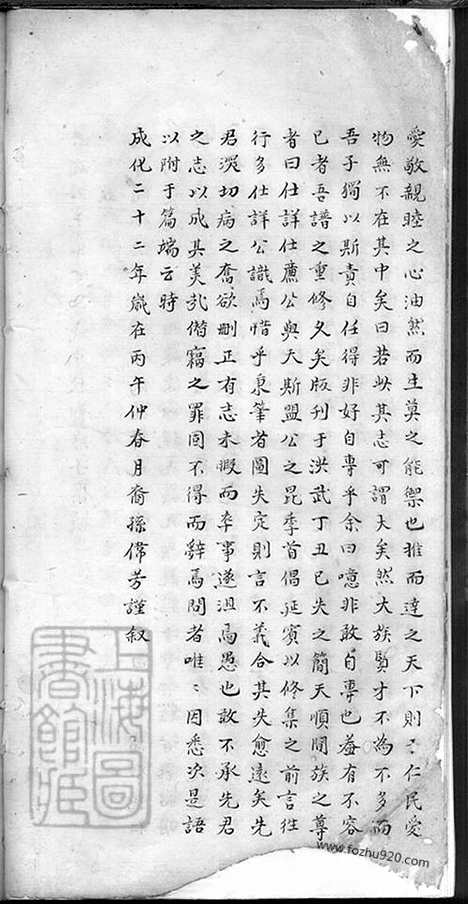 愛敬親睦之心油然而生莫之能禦也推而達之天下則〻仁民愛
物無不在其中矣曰若此其志可謂大矣然大族賢才不為不多而
吾子獨以斯責自任得非好自專乎余曰噫非敢自專也盖有不容
已者吾譜之重修久矣版刊于洪武丁丑已失之簡天順間族之尊
者曰仕詳仕廉公與天斯盟公之昆季首倡延賓以修集之前言徃
行多仕詳公識焉惜乎秉筆者圖失定則言不義合其失愈遠矣先
君深切病之奮欲刪正有志未暇而卒事遂沮焉愚也敢不承先君
之志以成其美哉僭竊之罪固不得而辭焉聞者唯〻因悉次是語
以附于篇端云時
成化二十二年歲在丙午仲春月裔孫儒芳謹叙
上海圖
書館藏
www.fozhu920.com